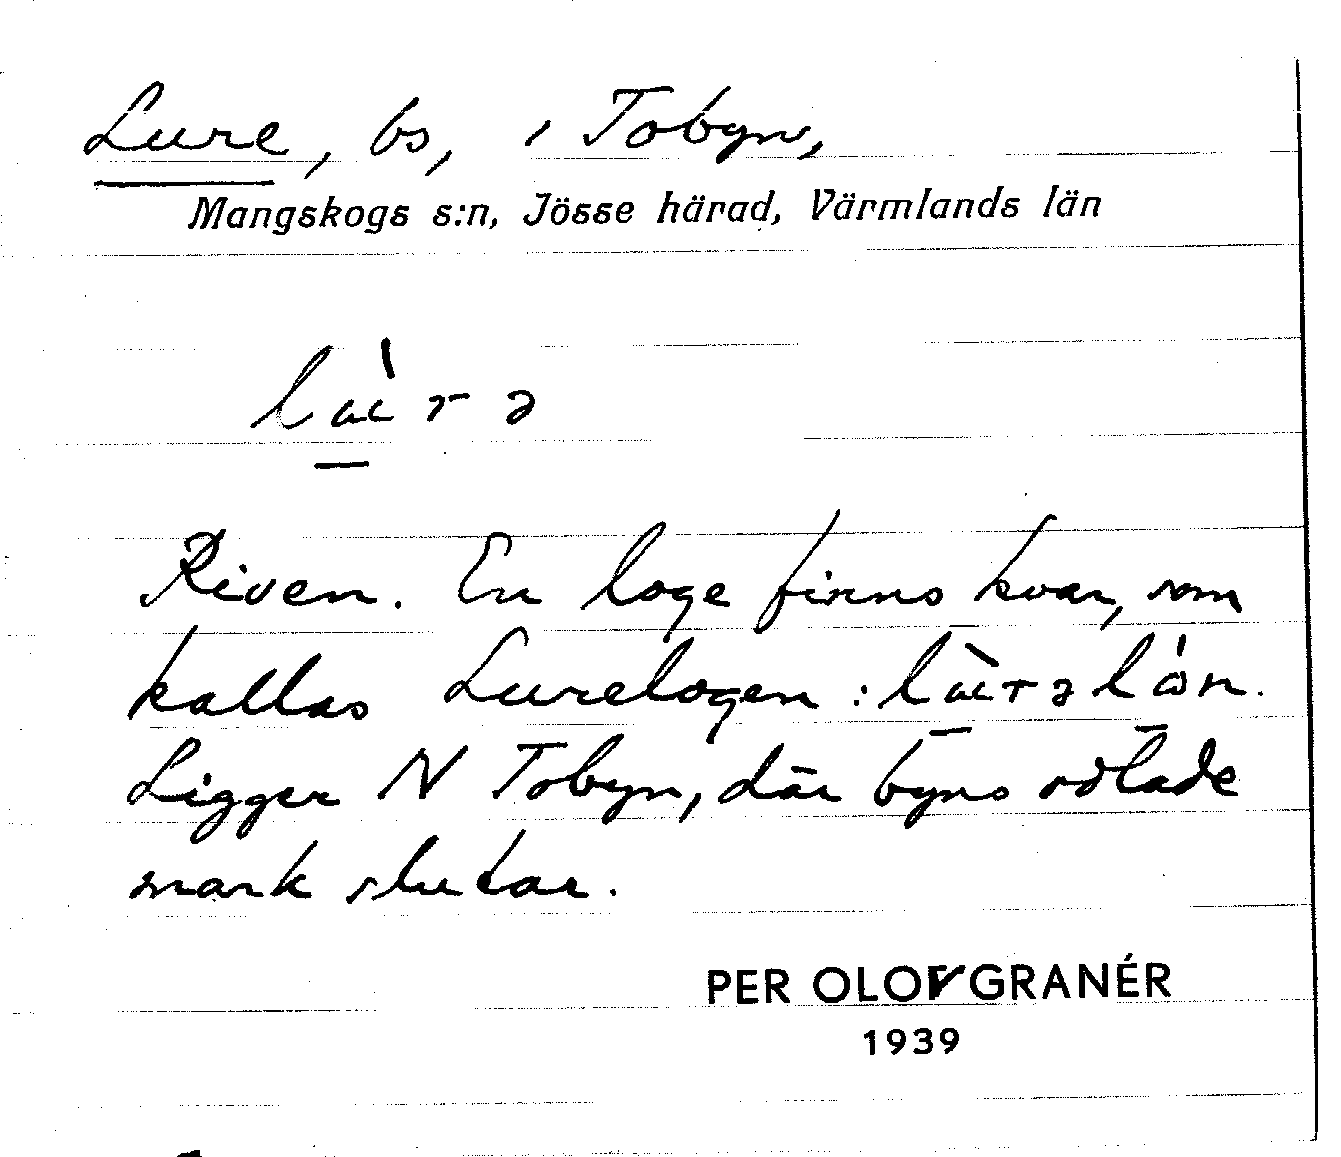 Lure, bs, i Tobyn,
Mangskogs s:n, Jösse härad, Värmlands län
lù̲rə
Riven. En loge finns kvar, som
kallas Lurelogen: lù̲rəlɷ̲́n.
Ligger N Tobyn, där byns odlade
mark slutar.
PER OLOV GRANÉR
1939